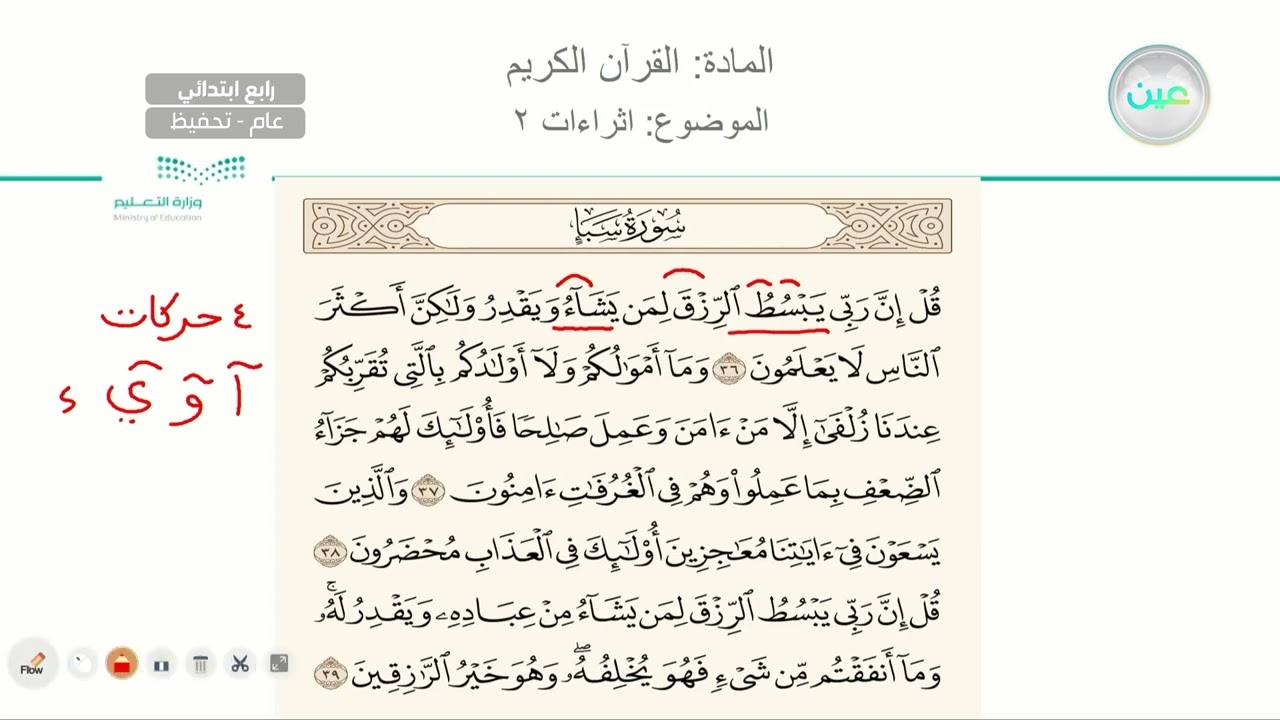 المادة: القرآن الكريم
الموضوع: اثراءات ٢
عين
رابع ابتدائي
عام - تحفيظ
وزارة التعليم
Ministry of Education
سُورَةُ سَبَإٍ
قُلْ إِنَّ رَبِّي يَبْسُطُ ٱلرِّزْقَ لِمَن يَشَآءُ وَيَقْدِرُ وَلَٰكِنَّ أَكْثَرَ
ٱلنَّاسِ لَا يَعْلَمُونَ ٣٦ وَمَآ أَمْوَٰلُكُمْ وَلَآ أَوْلَٰدُكُم بِٱلَّتِي تُقَرِّبُكُمْ
عِندَنَا زُلْفَىٰٓ إِلَّا مَنْ ءَامَنَ وَعَمِلَ صَٰلِحًا فَأُو۟لَٰٓئِكَ لَهُمْ جَزَآءُ
ٱلضِّعْفِ بِمَا عَمِلُوا۟ وَهُمْ فِي ٱلْغُرُفَٰتِ ءَامِنُونَ ٣٧ وَٱلَّذِينَ
يَسْعَوْنَ فِيٓ ءَايَٰتِنَا مُعَٰجِزِينَ أُو۟لَٰٓئِكَ فِي ٱلْعَذَابِ مُحْضَرُونَ ٣٨
قُلْ إِنَّ رَبِّي يَبْسُطُ ٱلرِّزْقَ لِمَن يَشَآءُ مِنْ عِبَادِهِۦ وَيَقْدِرُ لَهُۥۚ
وَمَآ أَنفَقْتُم مِّن شَيْءٍ فَهُوَ يُخْلِفُهُۥۖ وَهُوَ خَيْرُ ٱلرَّٰزِقِينَ ٣٩
٤ حركات
آ وٓ يٓ ء
Flow